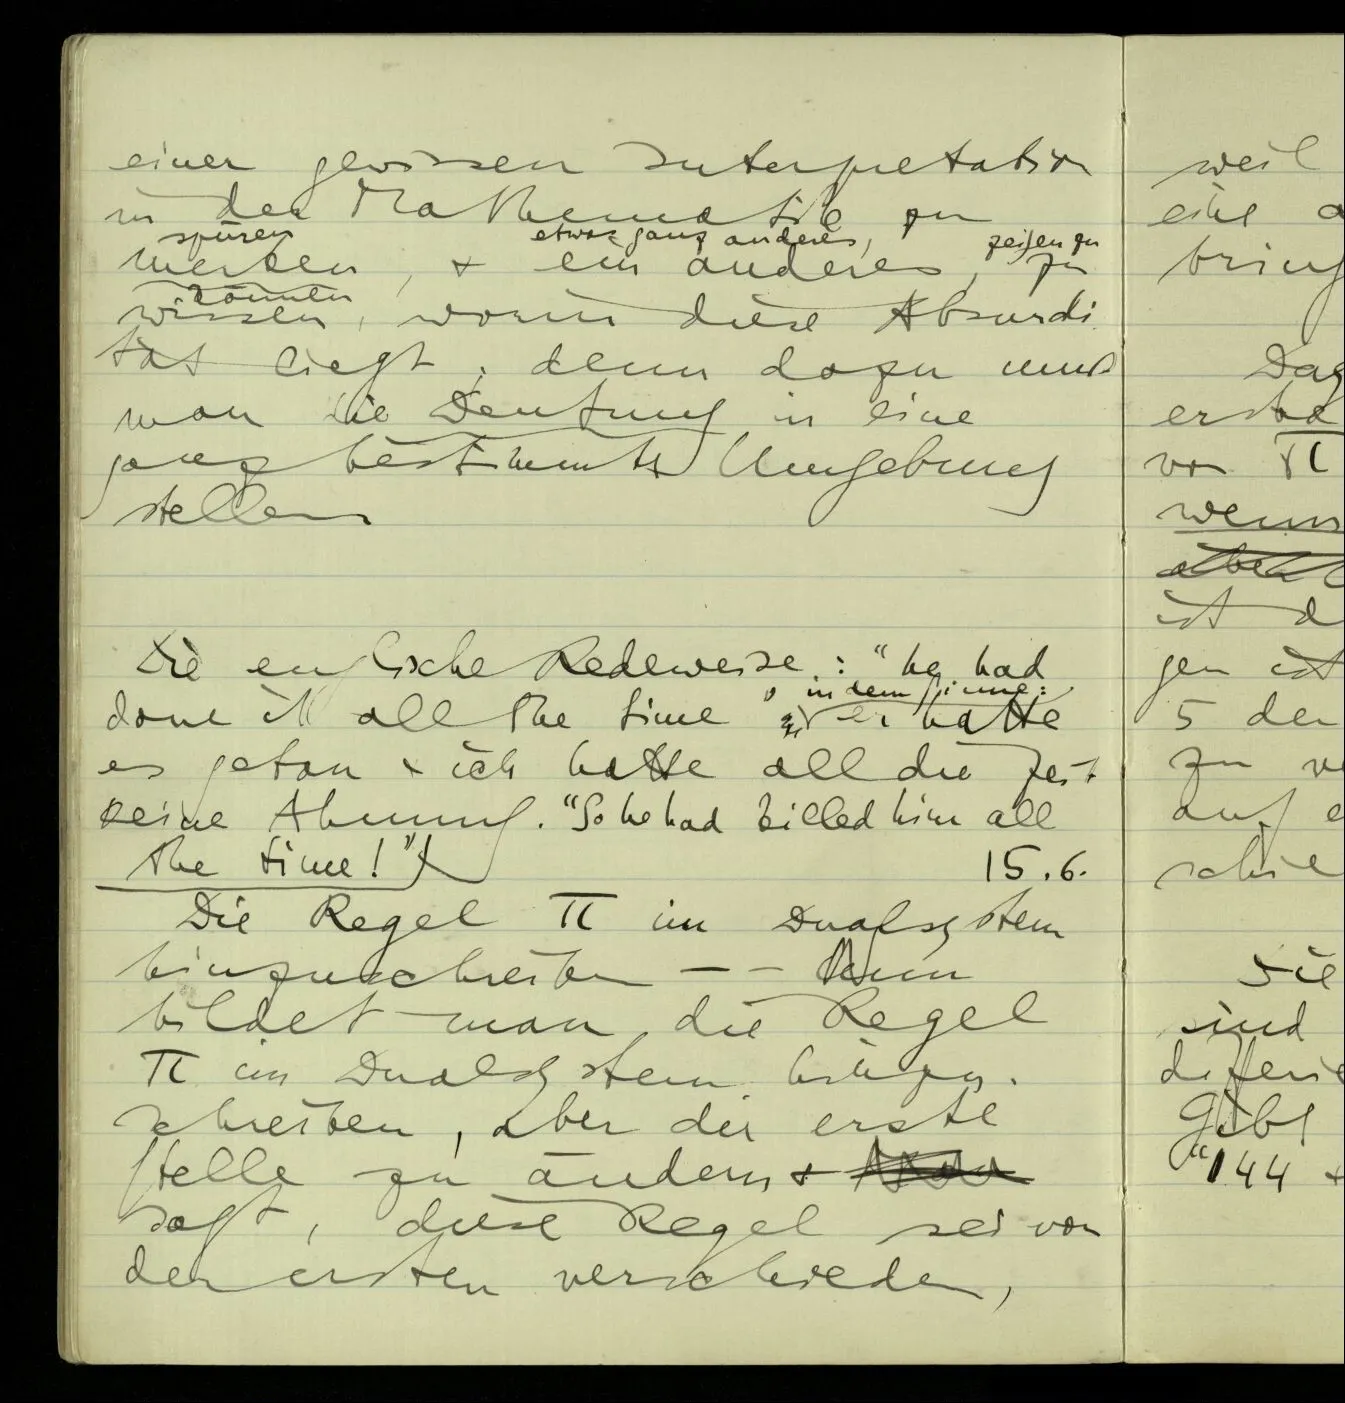 einer gewissen Interpretation
in der Mathematik zu
spüren etwas ganz anderes, zeigen zu
merken, & ein anderes, zu
können
wissen, worin diese Absurdi
tät liegt; denn dazu muß
man die Deutung in eine
ganz bestimmte Umgebung
stellen
Die englische Redeweise: "he had
in dem Sinne:
done it all the time", er hatte
es getan & ich hatte all die Zeit
keine Ahnung. "So he had killed him all
the time!")
15.6.
Die Regel π im Dualsystem
hinzuschreiben – – Nun
bildet man, die Regel
π im Dualsystem hinzu.
schreiben, aber die erste
Stelle zu ändern &
sagt, diese Regel sei von
der ersten verschieden,
weil
eine a
bring
Dag
erste
von π
wenn
ist d
gen ist
5 der
zu ve
auf e
schie
Die
sind
differie
Gibt
"144 &